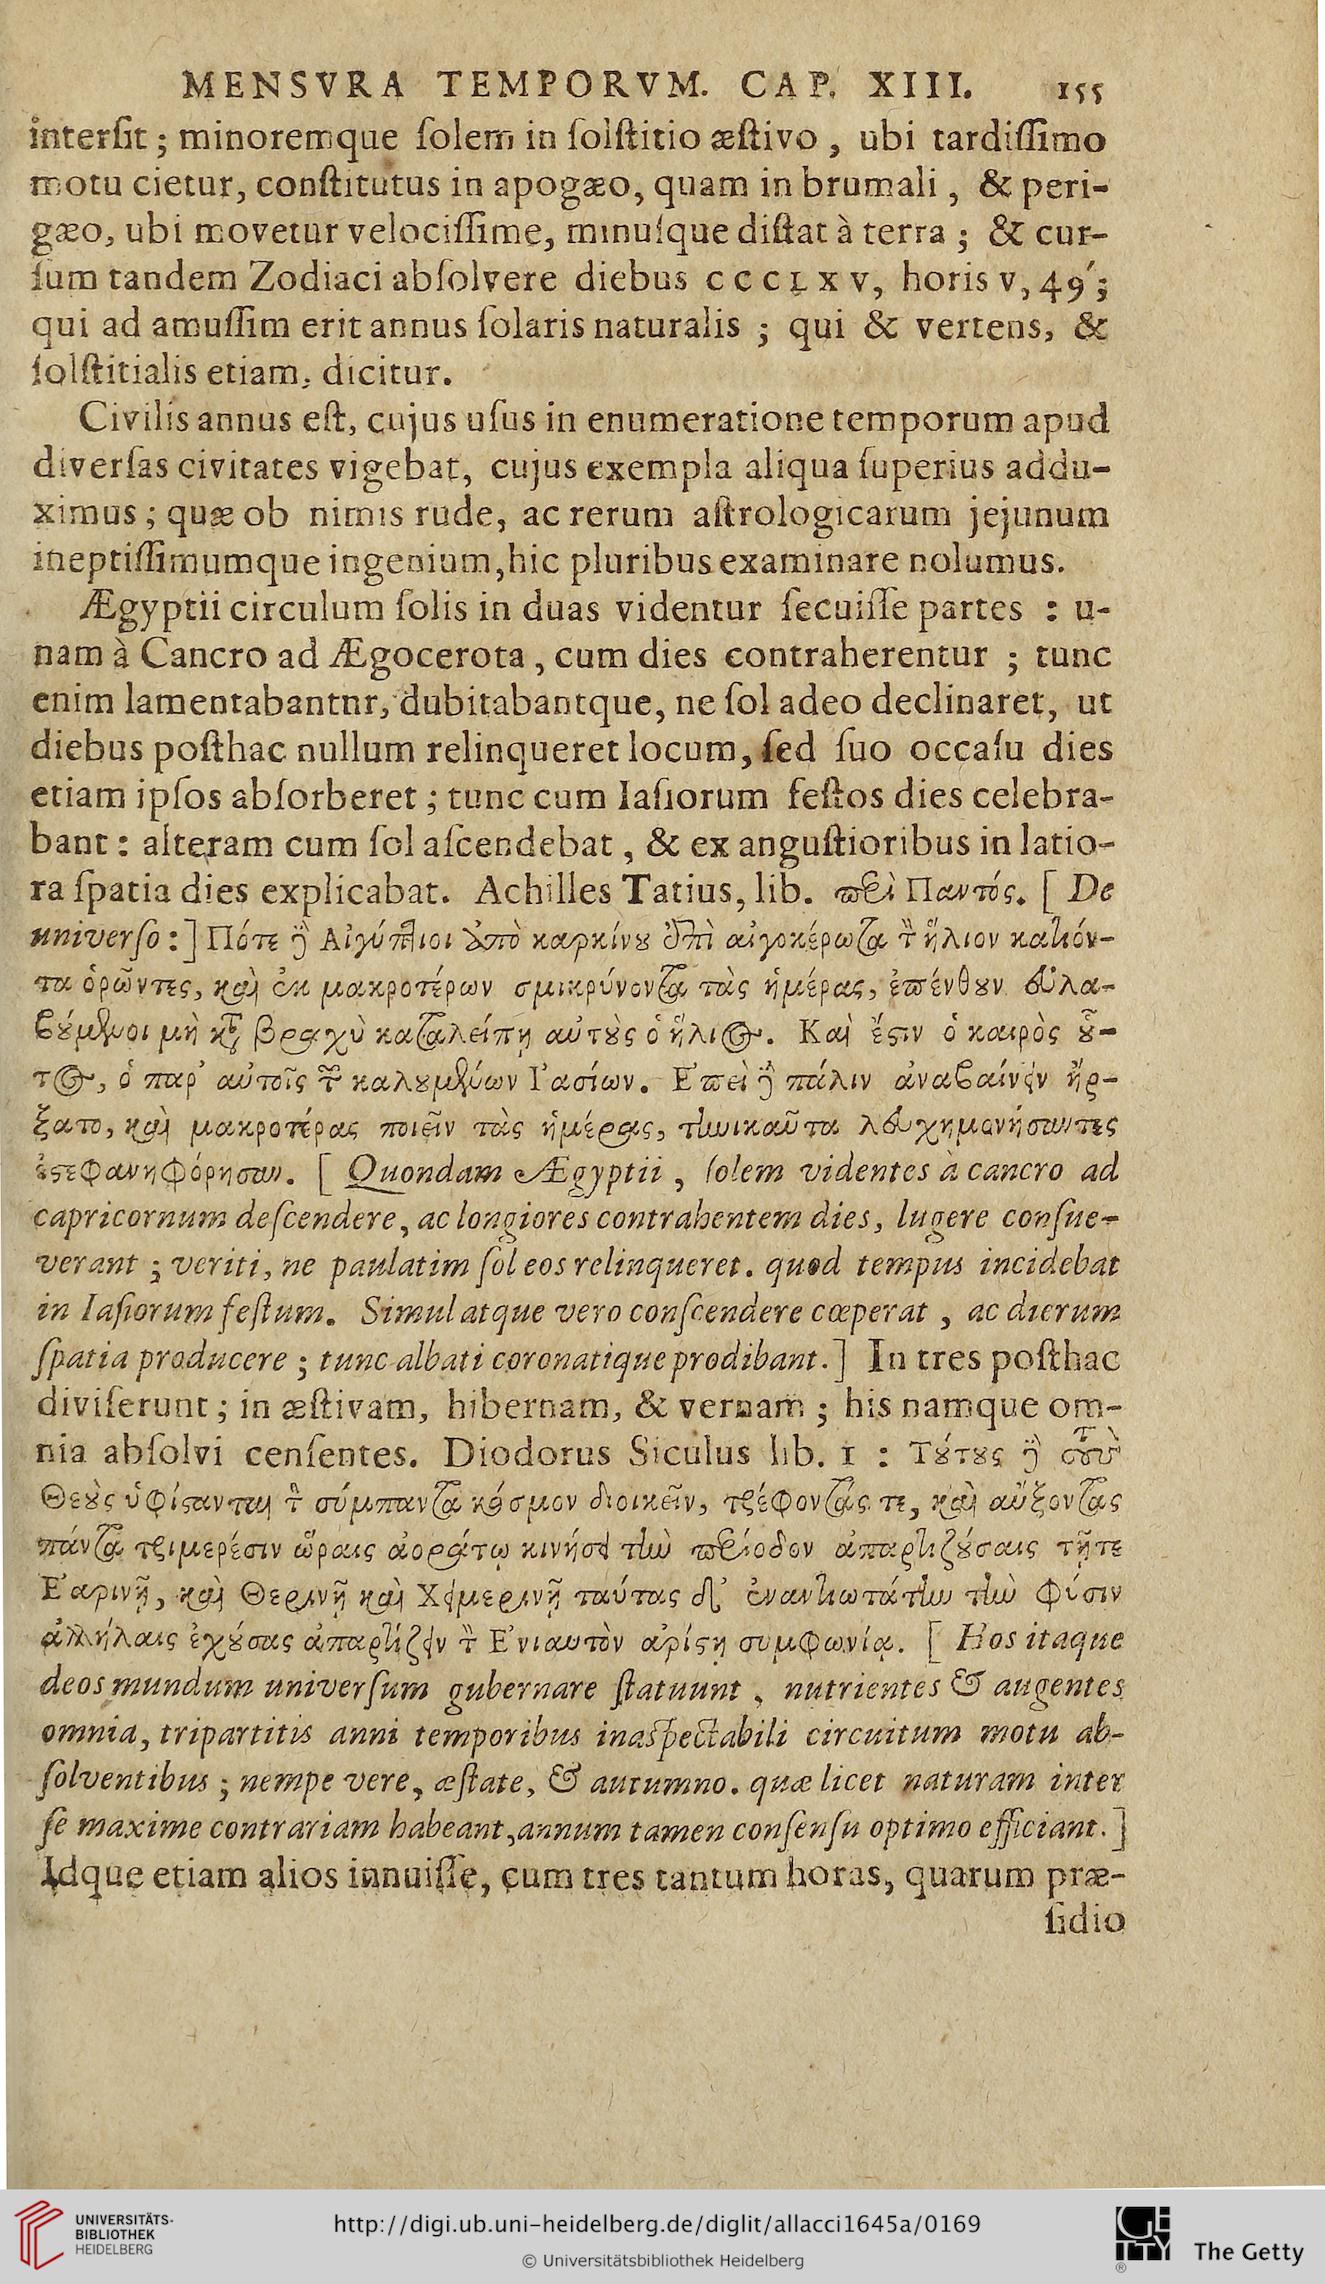 MENSVRA TEMPORVM. CAP. XIII. 155
interſit; minoremque ſolem in ſolſtitio æſtivo, ubi tardiſſimo
motu cietur, conſtitutus in apogæo, quam in brumali, & peri-
gæo, ubi movetur velociſſime, minuſque diſtat à terra; & cur-
ſum tandem Zodiaci abſolvere diebus CCCLXV, horis V, 49′;
qui ad amuſſim erit annus ſolaris naturalis; qui & vertens, &
ſolſtitialis etiam, dicitur.
Civilis annus eſt, cujus uſus in enumeratione temporum apud
diverſas civitates vigebat, cujus exempla aliqua ſuperius addu-
ximus; quæ ob nimis rude, ac rerum aſtrologicarum jejunum
ineptiſſimumque ingenium, hic pluribus examinare nolumus.
Ægyptii circulum ſolis in duas videntur ſecuiſſe partes : u-
nam à Cancro ad Ægocerota, cum dies contraherentur; tunc
enim lamentabantnr, dubitabantque, ne ſol adeo declinaret, ut
diebus poſthac nullum relinqueret locum, ſed ſuo occaſu dies
etiam ipſos abſorberet; tunc cum Iaſiorum feſtos dies celebra-
bant : alteram cum ſol aſcendebat, & ex anguſtioribus in latio-
ra ſpatia dies explicabat. Achilles Tatius, lib. περὶ Παντός. [ De
univerſo : ] Πότε ἢ Αἰγύπτιοι ἀπὸ καρκίνου ἐπὶ αἰγοκέρωτα τὸν ἥλιον κατιόν-
τα ὁρῶντες, καὶ ἐκ μακροτέρων σμικρύνοντα τὰς ἡμέρας, ἐπένθουν εὐλα-
βούμενοι μὴ κατὰ βραχὺ καταλείπῃ αὐτοὺς ὁ ἥλιος. Καὶ ἔστιν ὁ καιρὸς οὗ-
τος, ὁ παρ’ αὐτοῖς τῶν καλουμένων Ἰασίων. Ἐπεὶ ἢ πάλιν ἀναβαίνειν ἤρ-
ξατο, καὶ μακροτέρας ποιεῖν τὰς ἡμέρας, τηνικαῦτα λευχημονήσαντες
ἐστεφανηφόρησαν. [ Quondam Ægyptii, ſolem videntes à cancro ad
capricornum deſcendere, ac longiores contrahentem dies, lugere conſue-
verant; veriti, ne paulatim ſol eos relinqueret. quod tempus incidebat
in Iaſiorum feſtum. Simul atque vero conſcendere cœperat, ac dierum
ſpatia producere; tunc albati coronatique prodibant. ] In tres poſthac
diviſerunt; in æſtivam, hibernam, & vernam; his namque om-
nia abſolvi cenſentes. Diodorus Siculus lib. I : Τούτους ἢ τοὺς
Θεοὺς ὑφίστανται τὸν σύμπαντα κόσμον διοικεῖν, τρέφοντάς τε, καὶ αὔξοντας
πάντα τριμερέσιν ὥραις ἀοράτῳ κινήσει τὴν περίοδον ἀπαρτιζούσαις τῇτε
Ἐαρινῇ, καὶ Θερινῇ καὶ Χειμερινῇ ταύτας δ’ ἐναντιωτάτην τὴν φύσιν
ἀλλήλαις ἐχούσας ἀπαρτίζειν τὸν Ἐνιαυτὸν ἀρίστῃ συμφωνίᾳ. [ Hos itaque
deos mundum univerſum gubernare ſtatuunt, nutrientes & augentes
omnia, tripartitis anni temporibus inaſpectabili circuitum motu ab-
ſolventibus; nempe vere, æſtate, & autumno. quæ licet naturam inter
ſe maxime contrariam habeant, annum tamen conſenſu optimo efficiant. ]
Idque etiam alios innuiſſe, cum tres tantum horas, quarum præ-
ſidio
UNIVERSITÄTS-
BIBLIOTHEK
HEIDELBERG
http://digi.ub.uni-heidelberg.de/diglit/allacci1645a/0169
© Universitätsbibliothek Heidelberg
GETTY
The Getty